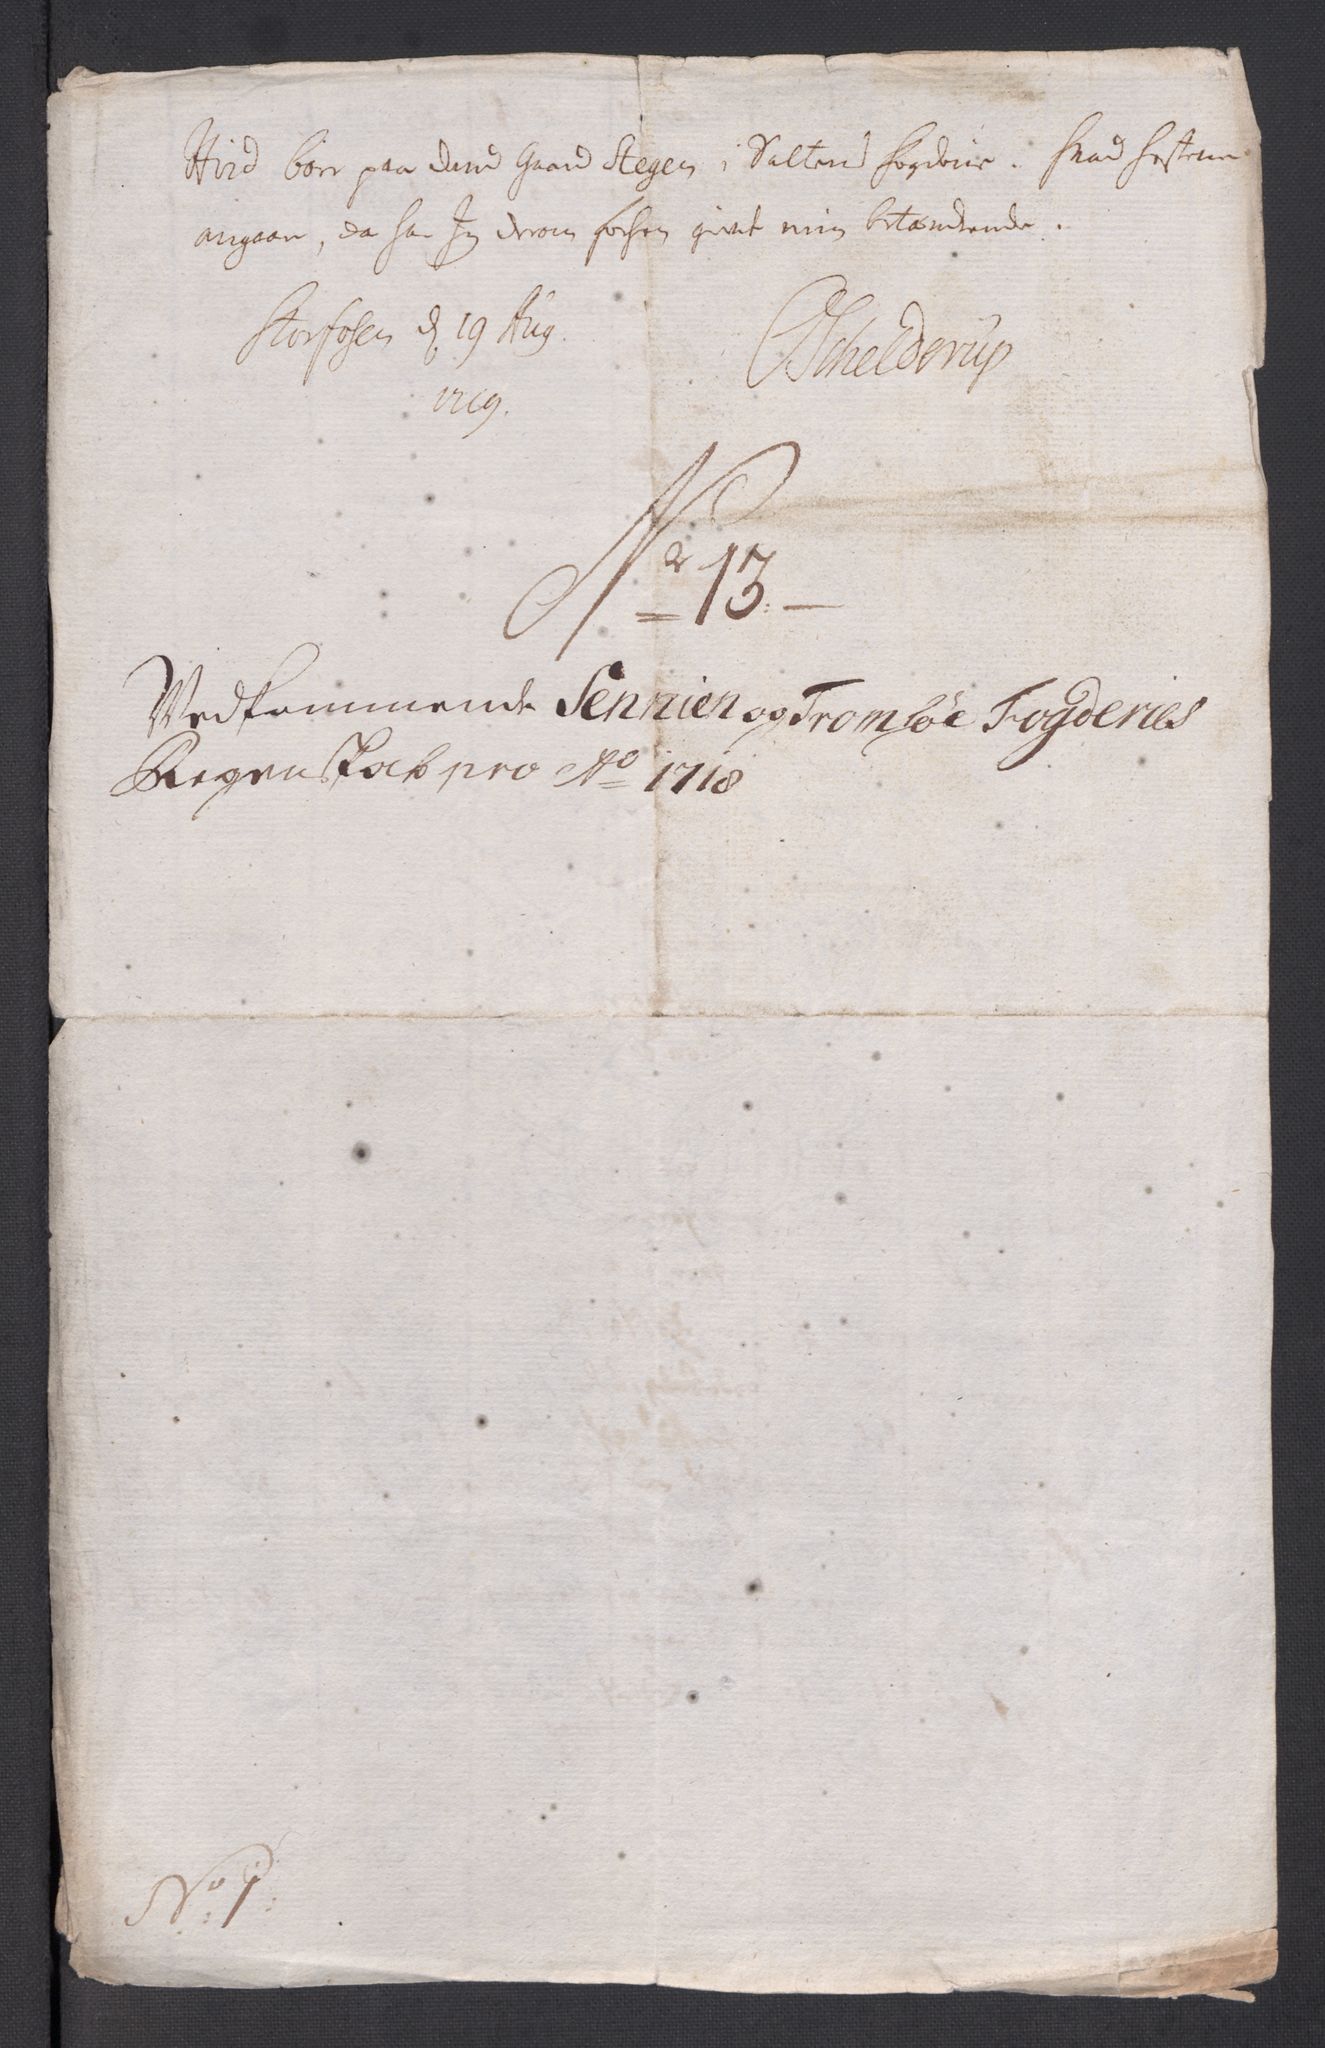 Hird boer paa dend Gaard Stegen i Saltens fogderie. hvad hestene
angaar, da har Jeg derom forhen givet min betænkende.
Storfosen d. 19 Aug.
1719.
OSchelderup
Nr 13.
Vedkommende Sennien og Tromsøe Fogderies
Regenskab pro Ao 1718
No: 1: